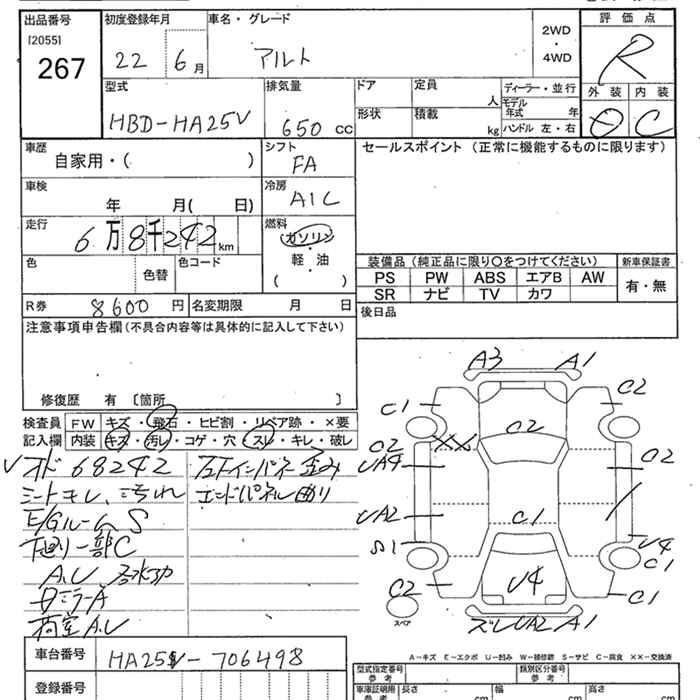 出品番号 初度登録年月 車名・グレード 2WD・4WD 評価点
[2055]
267 22 6月 アルト R
型式 排気量 ドア 定員 人 ディーラー・並行 外装 内装
HBD-HA25V 650 cc 形状 積載 kg モデル年式 年 ハンドル 左・右 C
車歴 自家用・( ) シフト FA セールスポイント (正常に機能するものに限ります)
車検 年 月( 日) 冷房 A/C
走行 6万8千242km 燃料 ガソリン・軽・油 ( )
色 色替 色コード
装備品(純正品に限り○をつけてください) 新車保証書
PS PW ABS エアB AW 有・無
SR ナビ TV カワ
R券 8600円 名変期限 月 日 後日品
注意事項申告欄(不具合内容等は具体的に記入して下さい)
修復歴 有 〔箇所 〕
検査員 FW キズ・飛石・ヒビ割・リペア跡・×要
記入欄 内装 キズ・汚レ・コゲ・穴・スレ・キレ・破レ
オド 68242 左下インパネ歪み
シートキレ、汚れ エンドパネル曲り
E/Gルーム S
下廻り一部C
ミラーA
荷室 A.U
A3 A1
C1 C2
C2 XX C2 C2
UA4
UA2 C1
S1 U4
C1
C2 U4 C1
スペア
ズレUA2 A1
A-キズ E-エクボ U-凹み W-補修跡 S-サビ C-腐食 ××-交換済
車台番号 HA25V-706498 型式指定番号 参考 類別区分番号 参考
登録番号 車庫証明用 参考 長さ cm 幅 cm 高さ cm